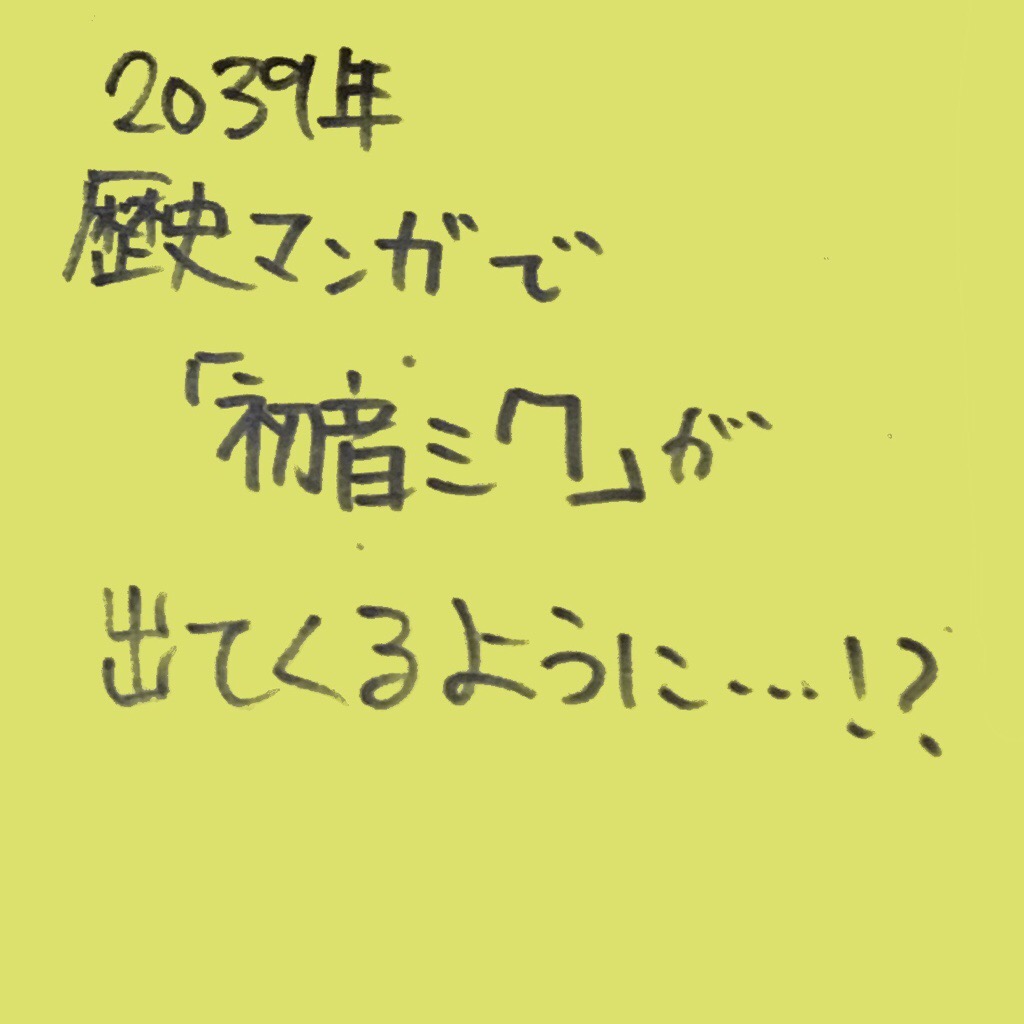 2039年
歴史マンガで
「初音ミク」が
出てくるように…!?